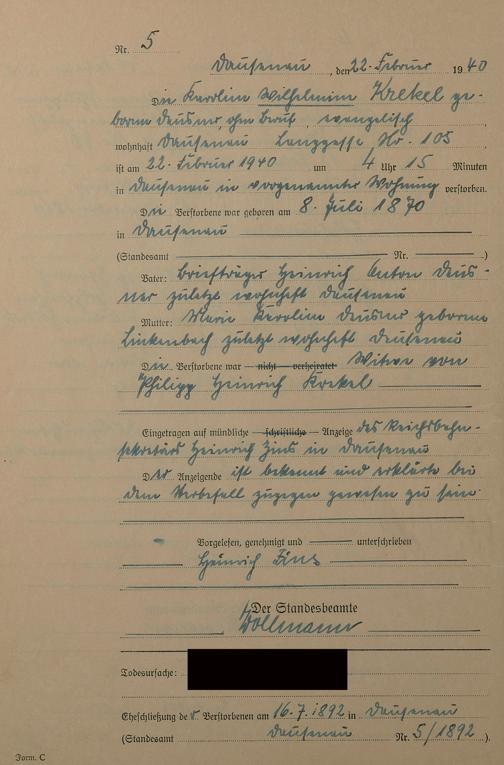 Nr. 5
Dausenau, den 22. Februar 1940
Die Karoline Wilhelmine Krekel ge-
borene Deusner, ohne Beruf, evangelisch
wohnhaft Dausenau Langgasse Nr. 105
ist am 22. Februar 1940 um 4 Uhr 15 Minuten
in Dausenau in vorgenannter Wohnung verstorben.
Die Verstorbene war geboren am 8. Juli 1870
in Dausenau
(Standesamt Nr. )
Vater: Briefträger Heinrich Anton Deus-
ner zuletzt wohnhaft Dausenau
Mutter: Marie Karoline Deusner geborene
Linkenbach zuletzt wohnhaft Dausenau
Die Verstorbene war nicht verheiratet Witwe von
Philipp Heinrich Krekel
Eingetragen auf mündliche schriftliche Anzeige des Reichsbahn-
sekretärs Heinrich Zins in Dausenau
Der Anzeigende ist bekannt und erklärte bei
dem Sterbefall zugegen gewesen zu sein.
Vorgelesen, genehmigt und unterschrieben
Heinrich Zins
Der Standesbeamte
Wollmann
Todesursache:
Eheschließung der Verstorbenen am 16.7.1892 in Dausenau
(Standesamt Dausenau Nr. 5/1892 ).
Form. C